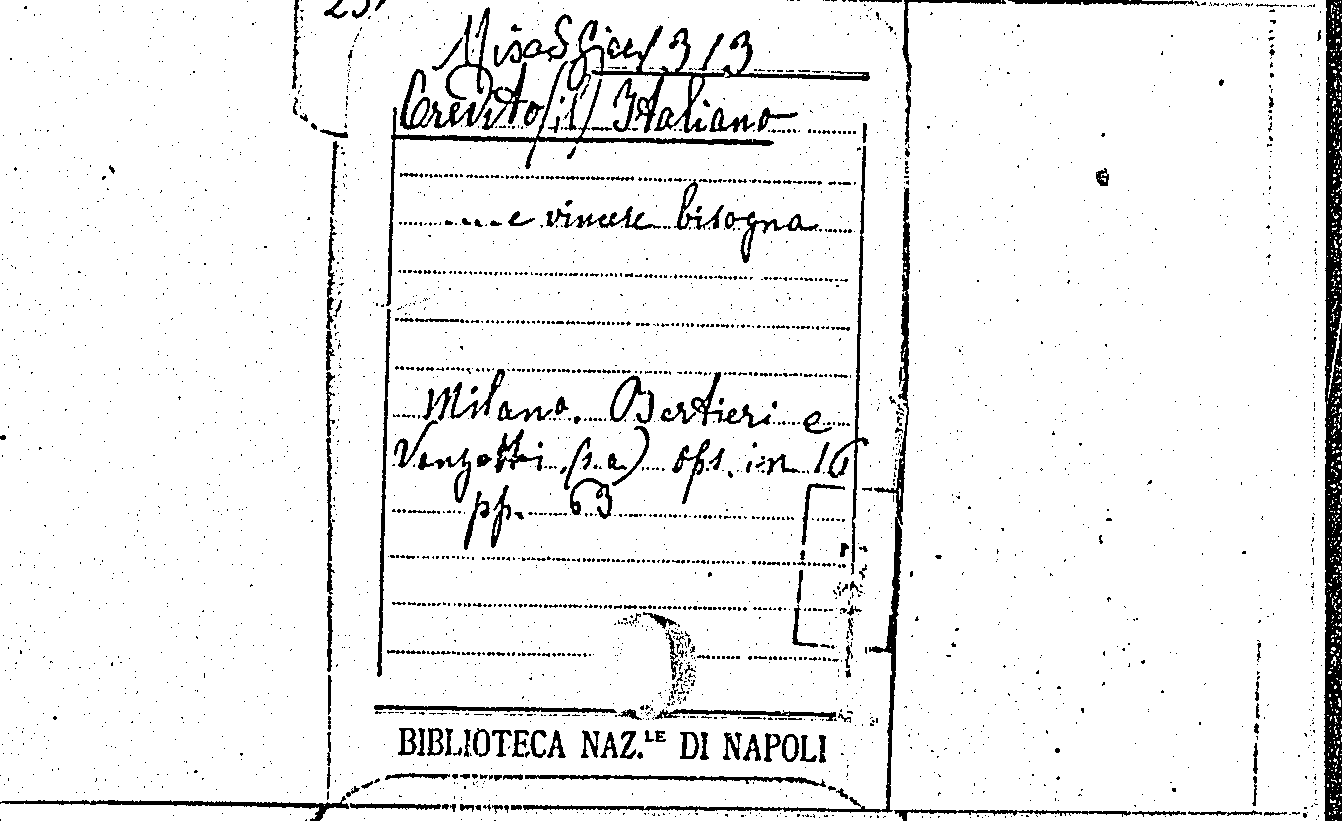 Misc
1313
Credito (il) Italiano
....e vincere bisogna
Milano. Bertieri e
Vanzetti (s.a.) ops. in 16
pp. 63
BIBLIOTECA NAZ.LE DI NAPOLI